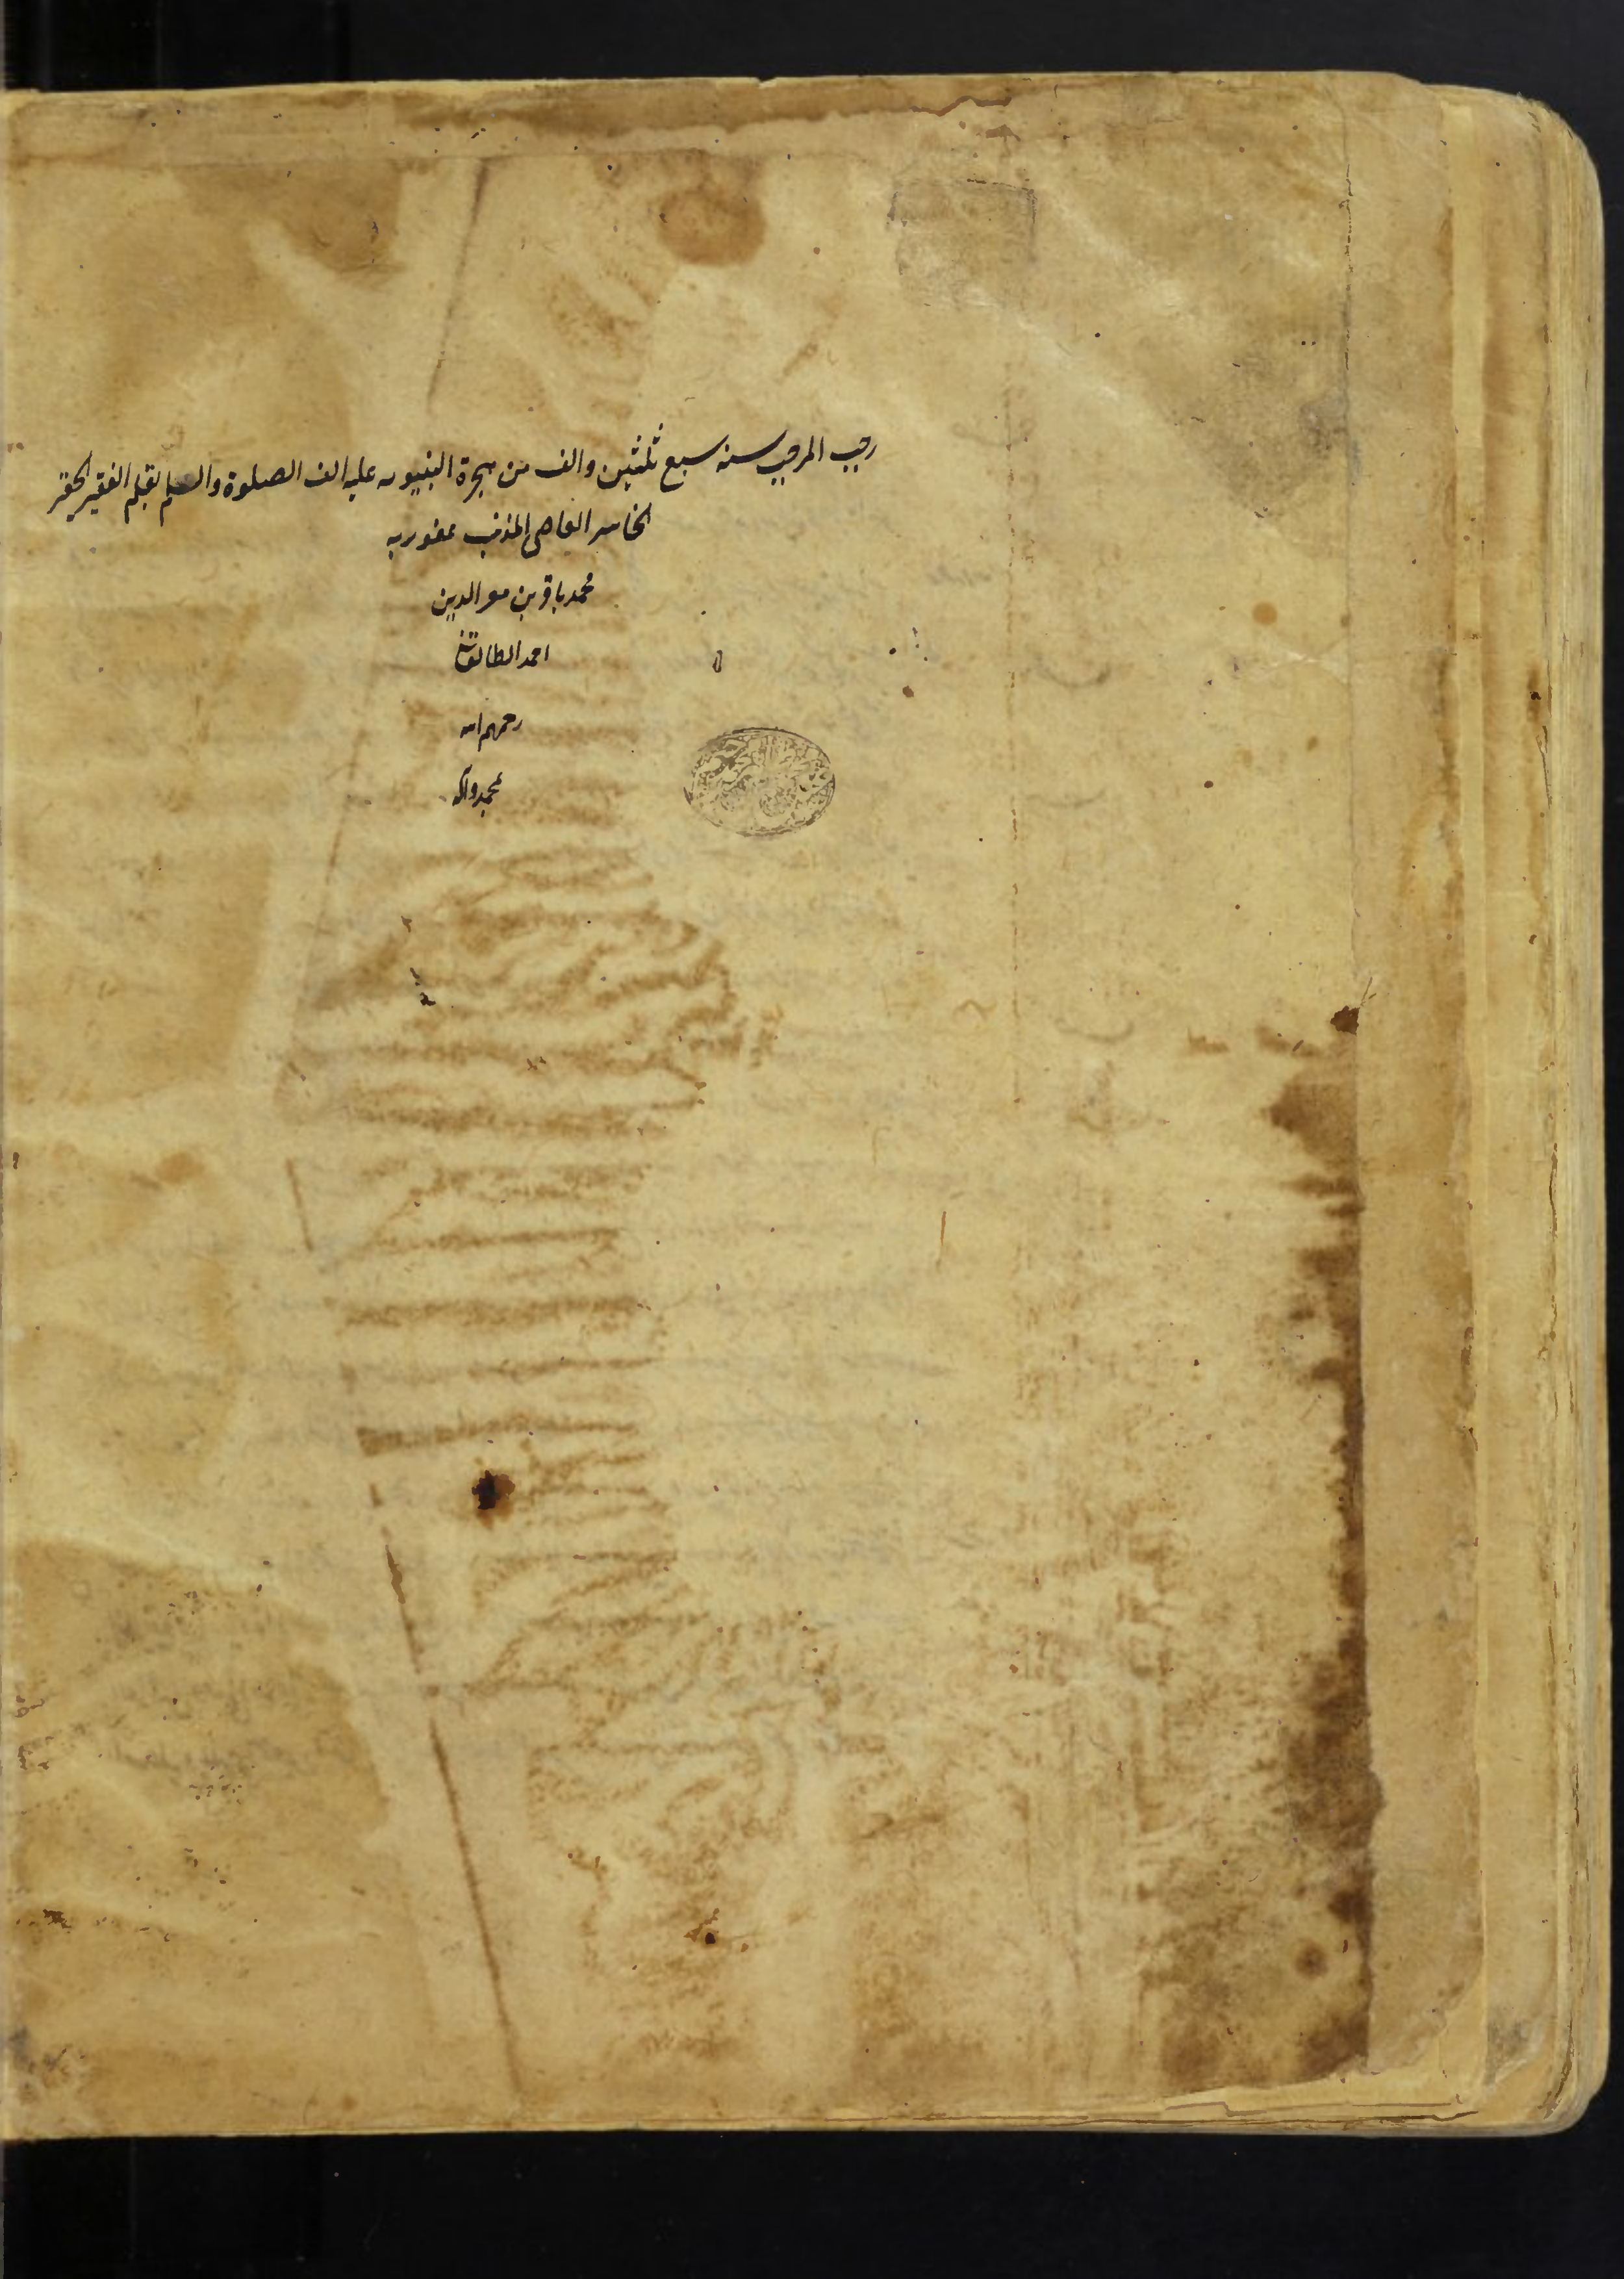 رجب المرجب سنه سبع ثلثین والف من هجرة النبیویه علیه الف الصلوة والسلم بقلم الفقیر الحقیر
الخاسر العاصی المذنب عفو ربه
محمد باقر بن معز الدین
احمد الطالقانی
رحمهم الله
بمحمد وآله